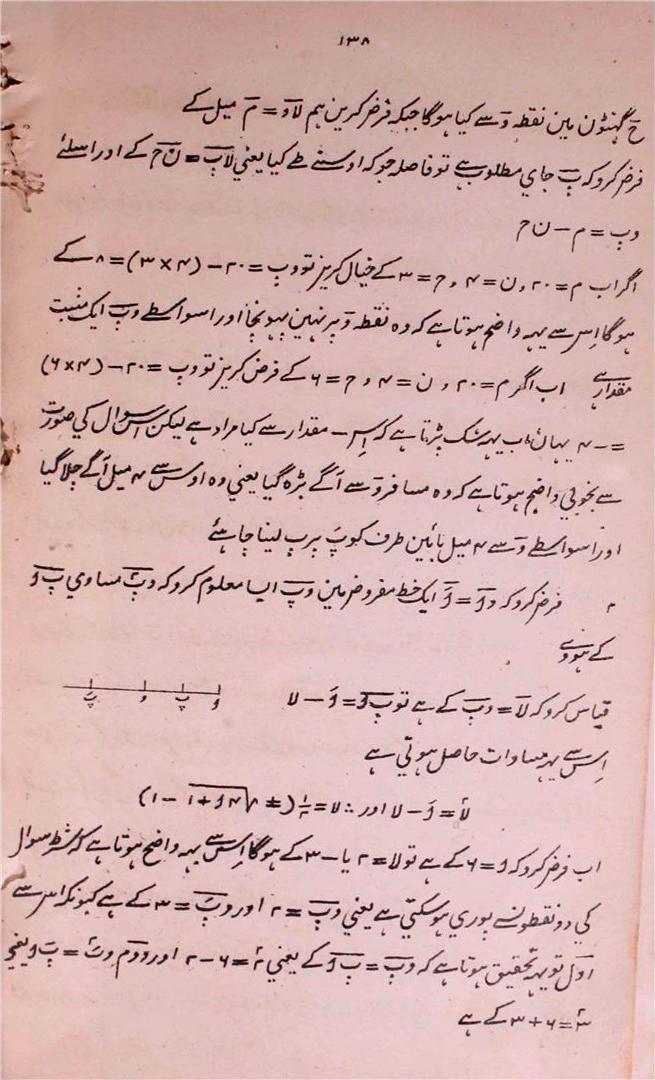 ۱۳۸
حَ گھنٹون مین نقطہ وَ سے کیا ہوگا جبکہ فرض کرین ہم لاوَ = مَ میل کے
فرض کرو کہ پَ جاي مطلوب ہے تو فاصلہ جو کہ اوسنے طے کیا یعني لاپَ = نَ حَ کے اور اسلئے
وپ = م − ن ح
اگر اب م = ۲۰ , ن = ۴ , ح = ۳ کے خیال کرین تو وپ = ۲۰ − (۳ × ۴) = ۸ کے
ہوگا اِس سے یہہ واضح ہوتا ہے کہ وہ نقطہ وَ پر نہین پہونچا اور اسواسطے وپَ ایک مثبت
مقدار ہے اب اگر م = ۲۰ , ن = ۴ , ح = ۶ کے فرض کرین تو وپ = ۲۰ − (۶ × ۴)
= − ۴ یہان اب یہہ شک پڑتا ہے کہ اِس − مقدار سے کیا مراد ہے لیکن اس سوال کي صورت
سے بخوبي واضح ہوتا ہے کہ وہ مسافر وَ سے آگے بڑہ گیا یعني وہ اوس سے ۴ میل آگے چلا گیا
اور اسواسطے وَ سے ۴ میل بائین طرف کو پَ پر پ لینا چاہئے
۲ فرض کرو کہ وَ اَ = اَ ایک خط مفروض مین وپَ ایسا معلوم کرو کہ وپَ۲ مساوي پَ اَ
کے ہووے
قیاس کرو کہ لاَ = وپَ کے ہے تو پَ اَ = اَ − لا
اِس سے یہہ مساوات حاصل ہوتي ہے
لا۲ = اَ − لا اور ∴ لا = ½ (± √۴ا + ۱ − ۱)
اب فرض کرو کہ ا = ۶ کے ہے تو لا = ۲ یا − ۳ کے ہوگا اِس سے یہہ واضح ہوتا ہے کہ شرط سوال
کي دو نقطونسے پوري ہو سکتي ہے یعني وپَ = ۲ اور وپَ = ۳ کے ہے کیونکہ اس سے
اوّل تو یہہ تحقیق ہوتا ہے کہ وپَ = پَ اَ کے یعني ۲۲ = ۶ − ۲ اور دوم وپَ۲ = پَ ا یعني
۳۲ = ۶ + ۳ کے ہے
پَ و پ اَ